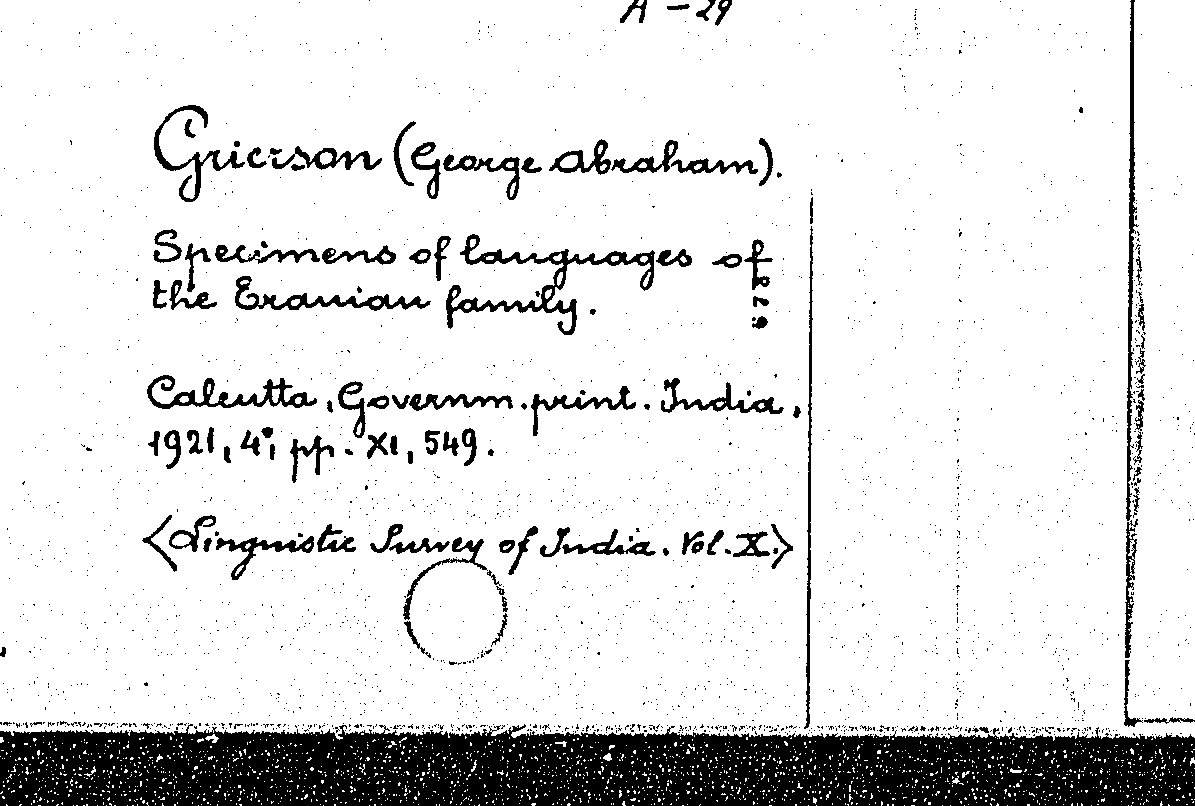 A - 29
Grierson (George Abraham).
Specimens of languages of
the Eranian family.
Calcutta, Governm. print. India,
1921, 4°, pp. XI, 549.
<Linguistic Survey of India. Vol. X.>